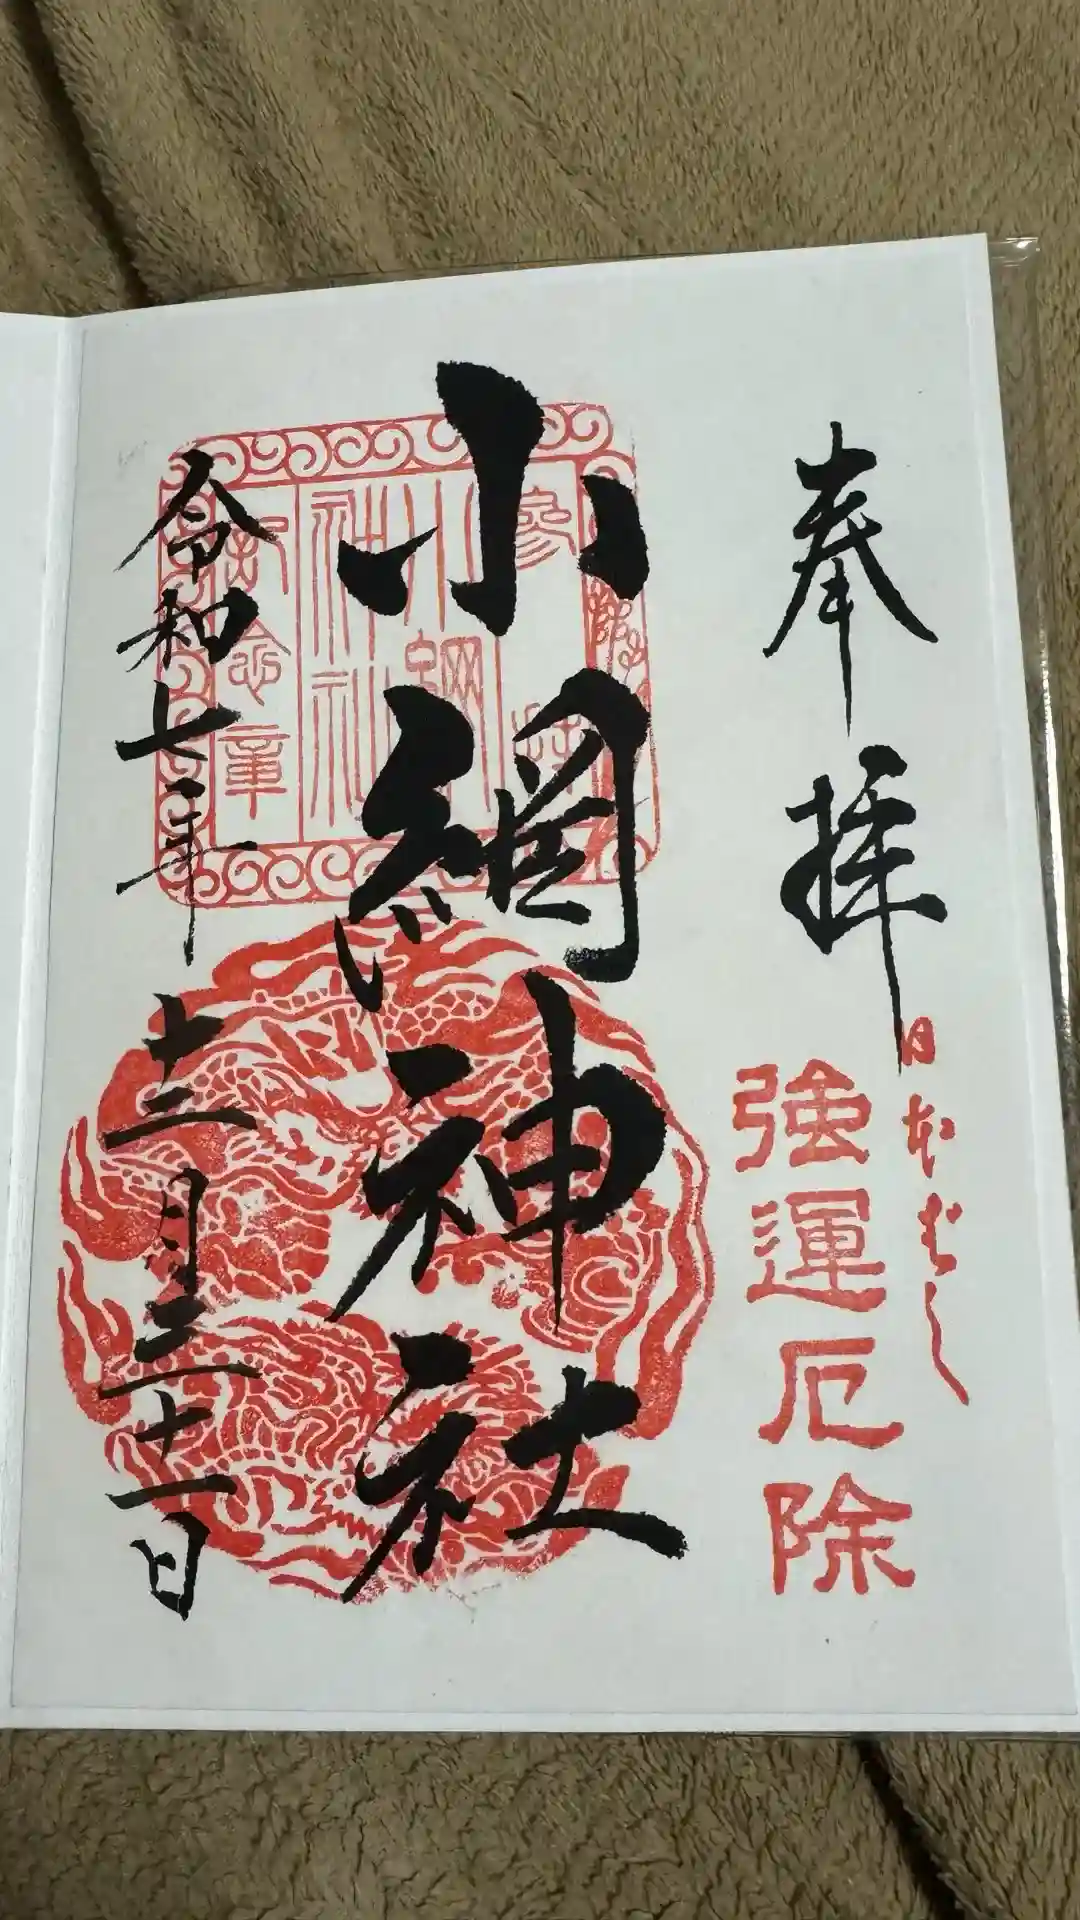 奉拝
日本ばし
強運厄除
小網神社
参拝
小網
神社
記念章
令和七年十二月三十一日